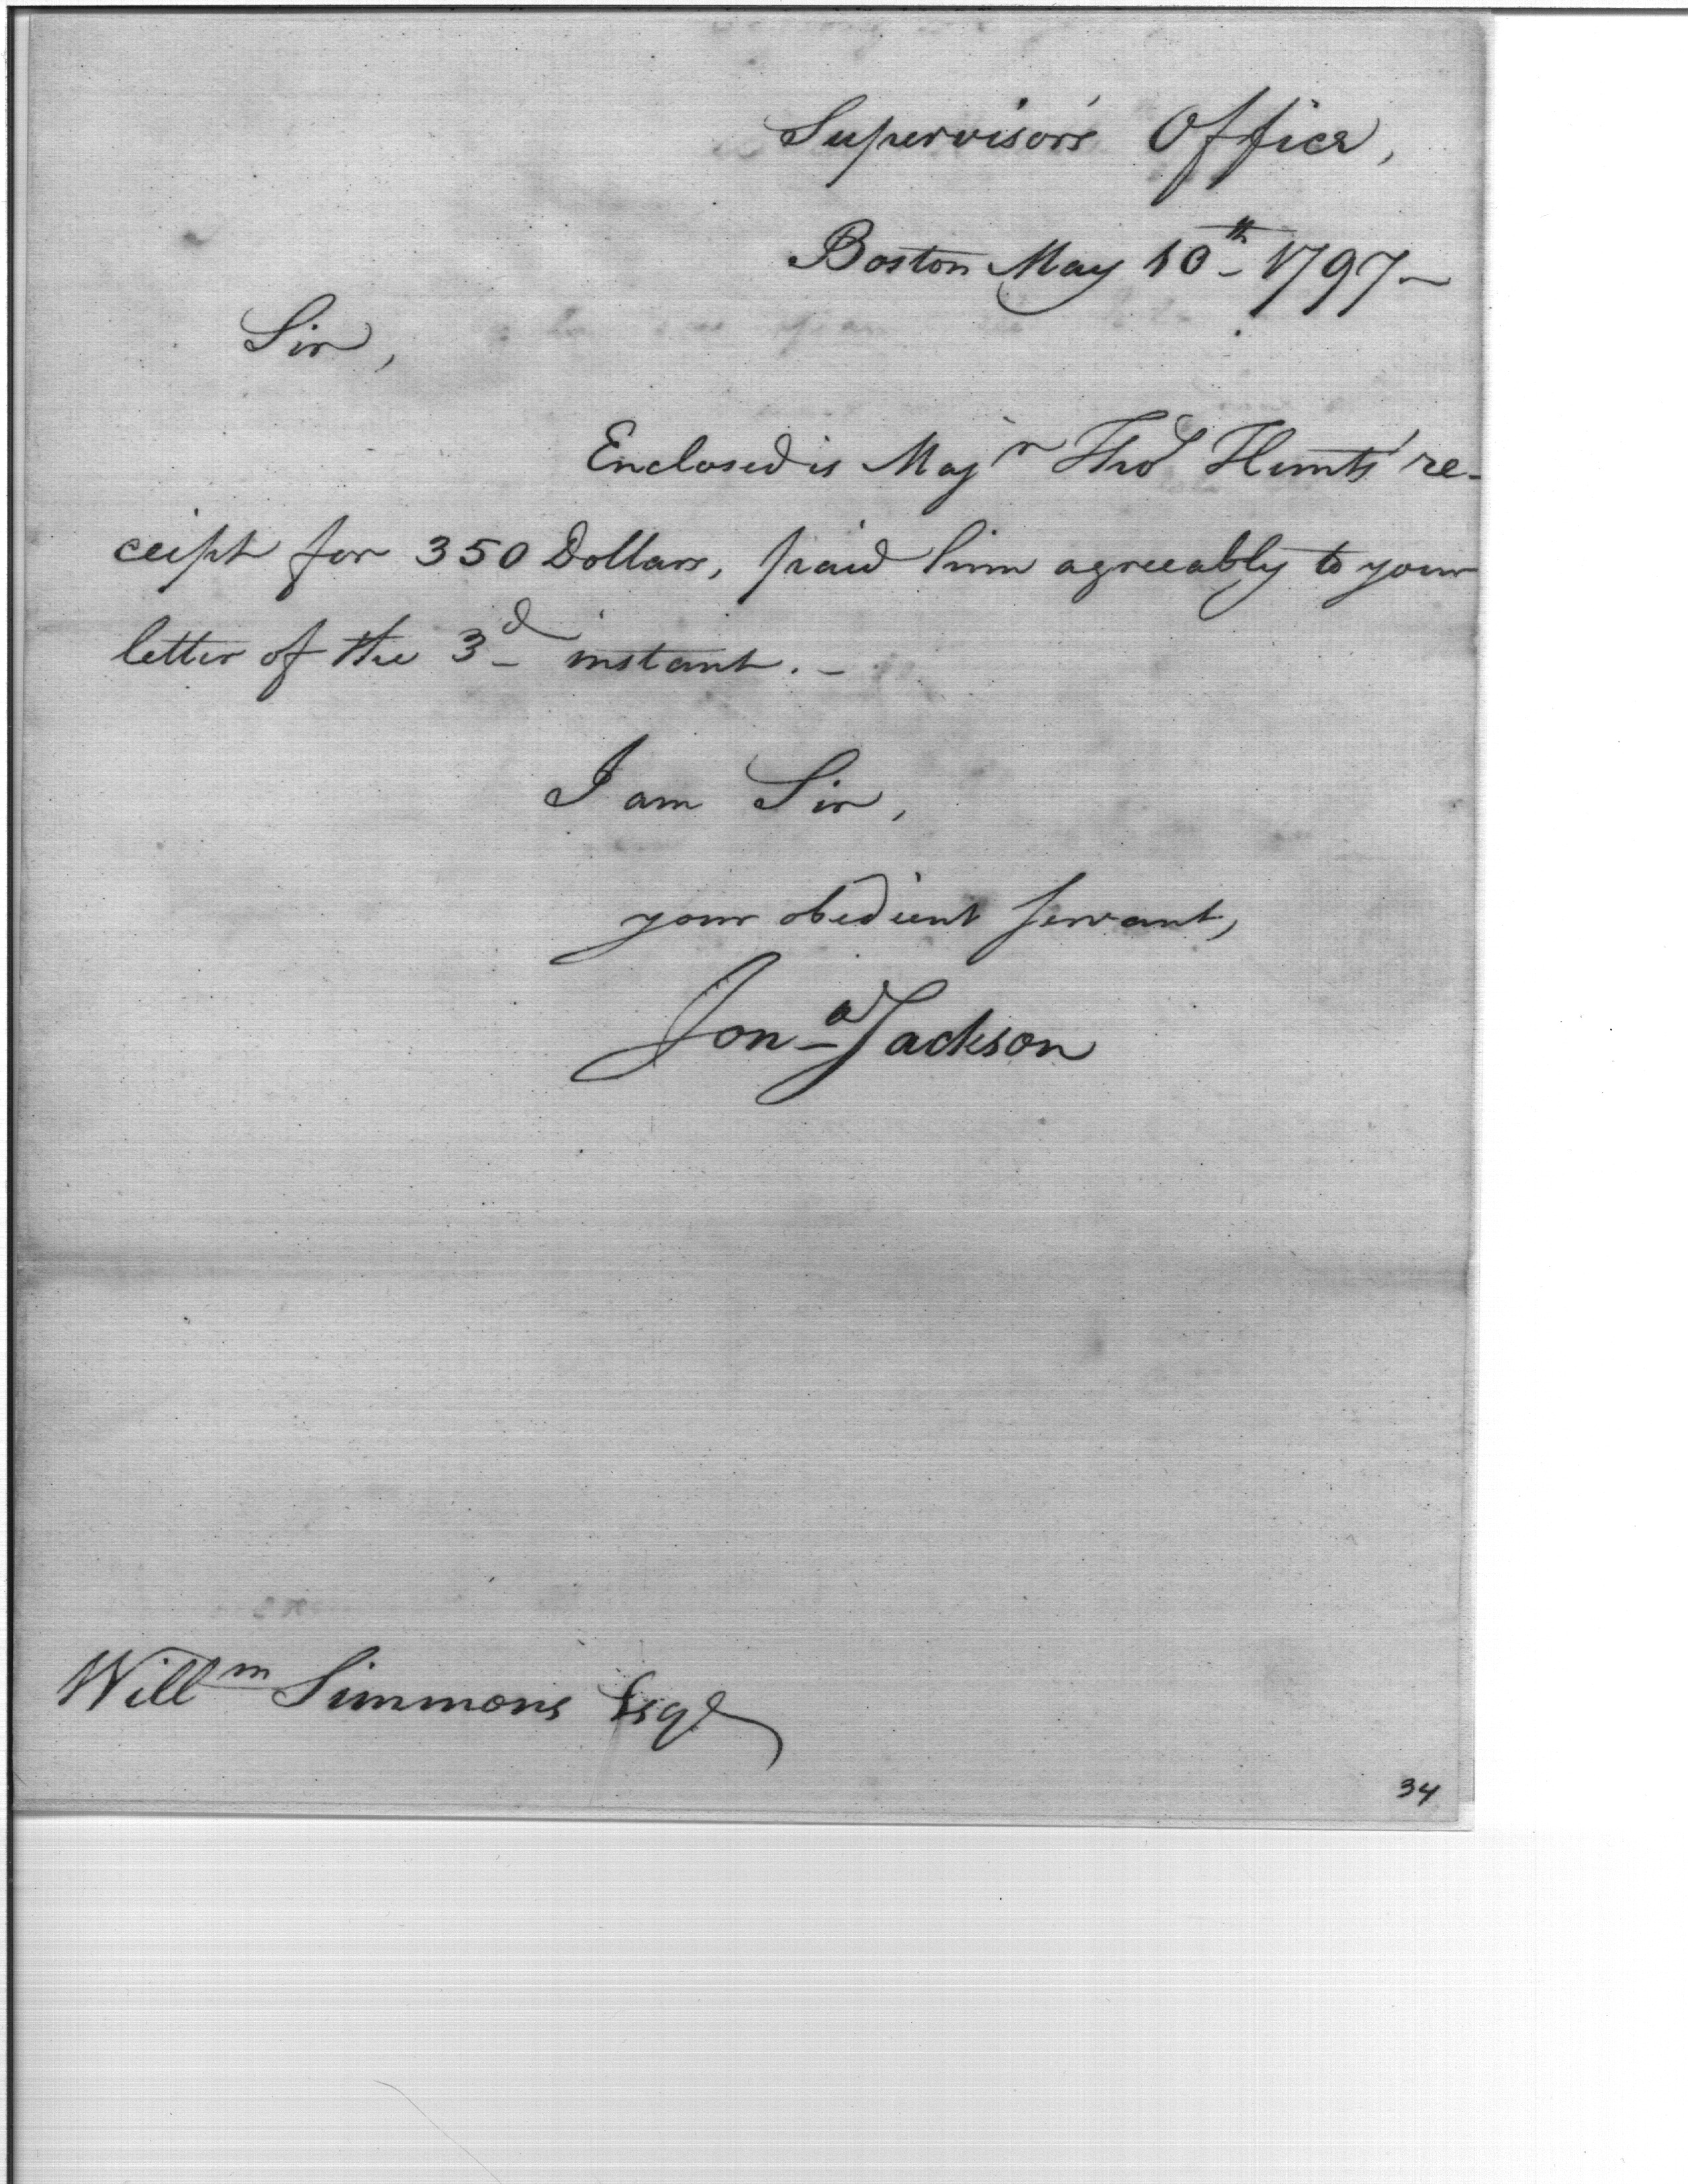 Supervisor's Office,
Boston May 10th 1797-
Sir,
Enclosed is Majr Thos Hunts' re-
ceipt for 350 Dollars, paid him agreeably to your
letter of the 3d instant. -
I am Sir,
your obedient servant,
Jona Jackson
Willm Simmons Esqr
34